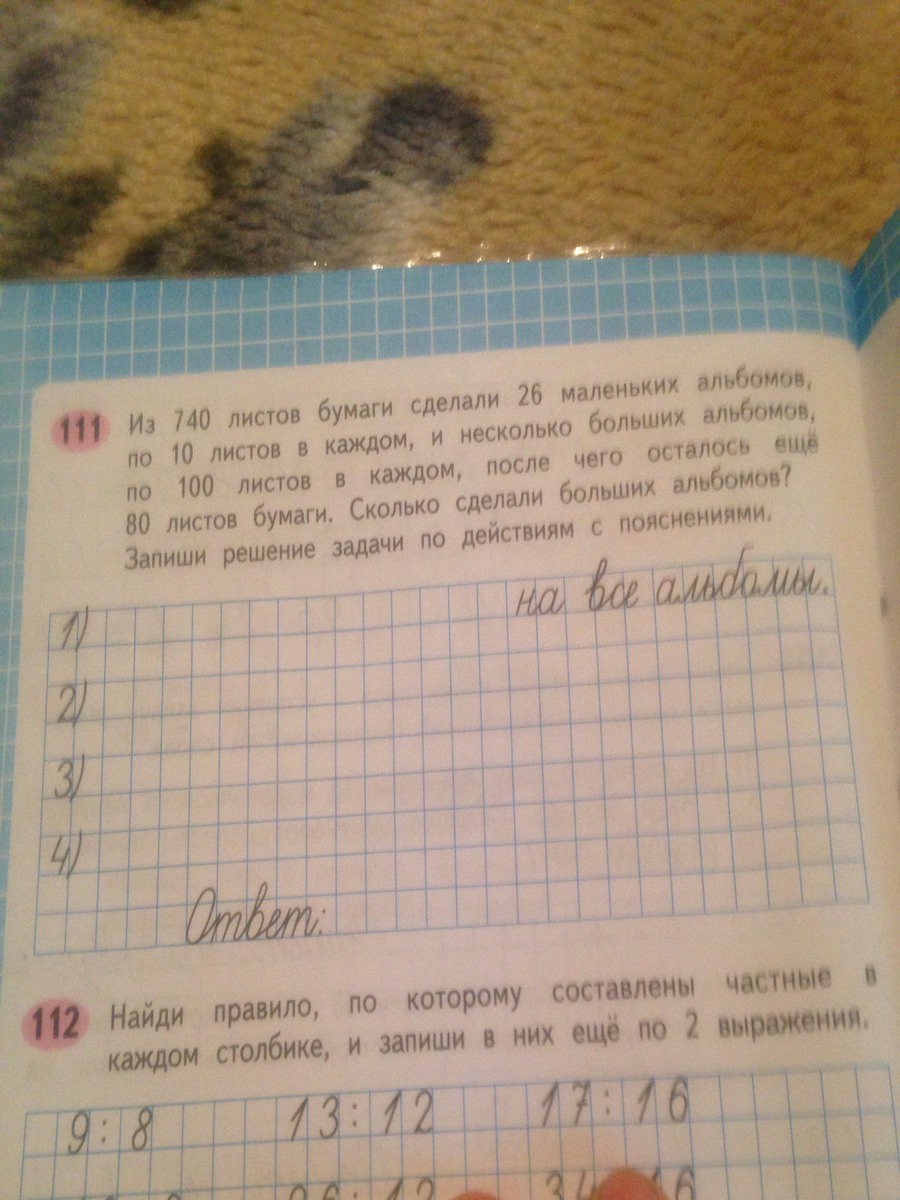 111 Из 740 листов бумаги сделали 26 маленьких альбомов,
по 10 листов в каждом, и несколько больших альбомов,
по 100 листов в каждом, после чего осталось ещё
80 листов бумаги. Сколько сделали больших альбомов?
Запиши решение задачи по действиям с пояснениями.
1) на все альбомы.
2)
3)
4)
Ответ:
112 Найди правило, по которому составлены частные в
каждом столбике, и запиши в них ещё по 2 выражения.
9 : 8 13 : 12 17 : 16